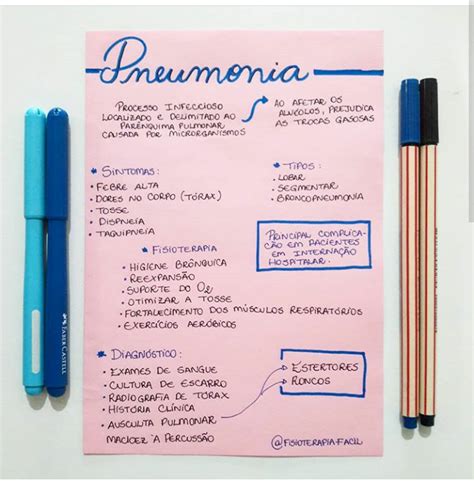 Pneumonia
PROCESSO INFECCIOSO
LOCALIZADO E DELIMITADO AO
PARÊNQUIMA PULMONAR
CAUSADA POR MICRORGANISMOS
AO AFETAR OS
ALVÉOLOS, PREJUDICA
AS TROCAS GASOSAS
* SINTOMAS:
• FEBRE ALTA
• DORES NO CORPO (TÓRAX)
• TOSSE
• DISPNEIA
• TAQUIPNEIA
* TIPOS:
• LOBAR
• SEGMENTAR
• BRONCOPNEUMONIA
PRINCIPAL COMPLICA-
ÇÃO EM PACIENTES
EM INTERNAÇÃO
HOSPITALAR.
* FISIOTERAPIA
• HIGIENE BRÔNQUICA
• REEXPANSÃO
• SUPORTE DO O2
• OTIMIZAR A TOSSE
• FORTALECIMENTO DOS MÚSCULOS RESPIRATÓRIOS
• EXERCÍCIOS AERÓBICOS
* DIAGNÓSTICO:
• EXAMES DE SANGUE
• CULTURA DE ESCARRO
• RADIOGRAFIA DE TÓRAX
• HISTÓRIA CLÍNICA
• AUSCULTA PULMONAR
MACICEZ À PERCUSSÃO
ESTERTORES
RONCOS
@FISIOTERAPIA.FACIL
FABER-CASTELL